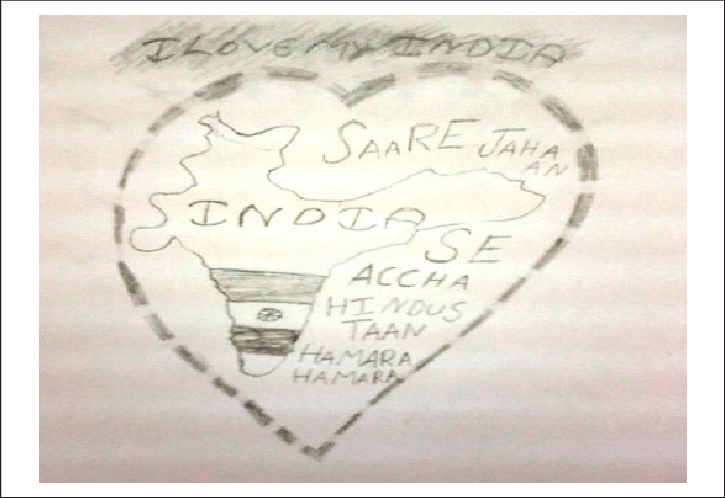 I LOVE MY INDIA
SAARE JAHA
AN
INDIA
SE
ACCHA
HINDUS
TAAN
HAMARA
HAMARA